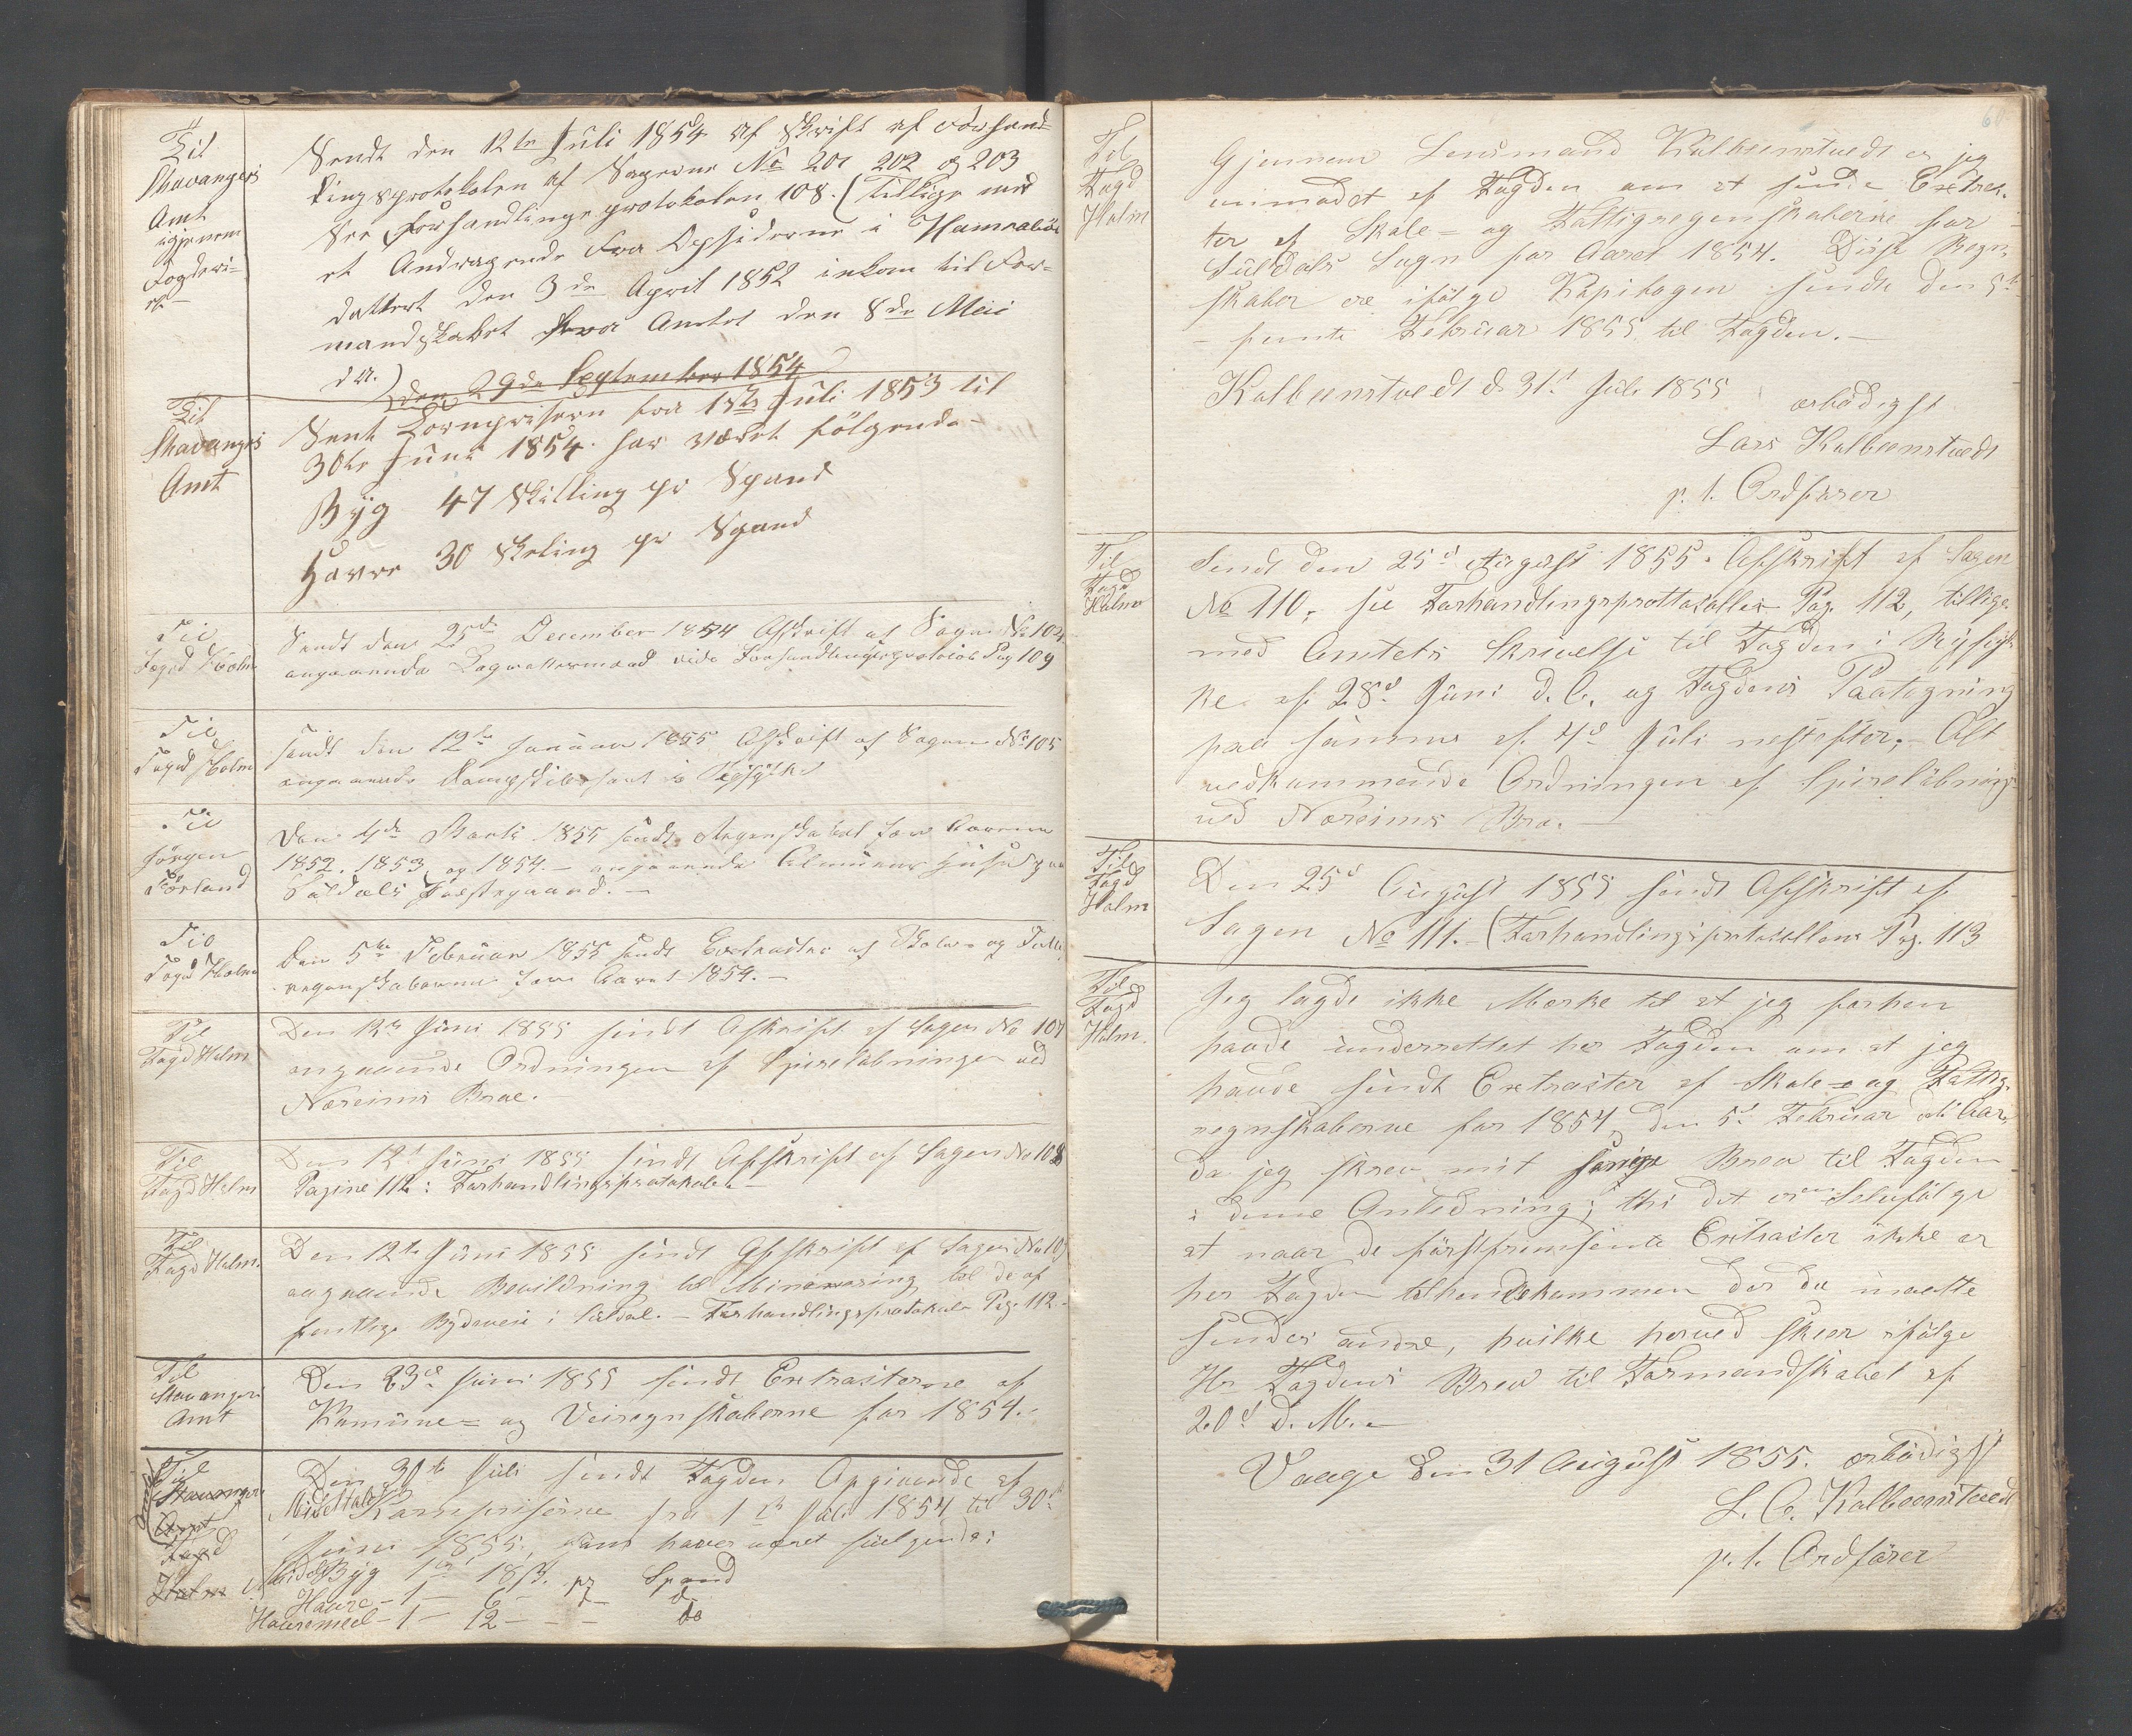 Til
Stavangers
Amt
igjenem
Fogderi-
et
Sendt den 12te Juli 1854 af skrift af Forhand-
lingsprotokolen af Sagerne No 201 202 og 203
See Forhandlingsprotokolen 108. (Tillige med
et Andragende Fra Opsiderne i
dattert den 3de April 1852 inkom til For-
mandskabet fra Amtet den 8de Mai
d A.)
den 29de September 1854
Til
Stavangers
Amt
Sent Kornprisern fra 1ste Juli 1853 til
30te Juni 1854. har været følgende
Byg 47 Skilling pr Spand
Havre 30 Skeling pr Spand
Til
Foged Holm
Sendt den 25de December 1854 Afskrift af Sagen No 104
angaaende vide Forhandlingsprotocol Pag 109
Til
Foged Holm
Sendt den 12te Januar 1855 Afskrift af Sagen No 105
angaaende Dampskibsfart i Ryfylke
Til
Jørgen
Førland
Den 4de 1855 sendt Regenskabet for Aarene
1852, 1853, og 1854. – angaaende
Suldals Prestegaard. –
Til
Foged Holm
Den 5te Februar 1855 sendt Extracter af Skole og Fattig
regenskaberne for Aaret 1854. –
Til
Fogd Holm
Den 12te Juni 1855 sendt Afskrift af Sagen No 107
angaaende Ordningen af Spireløbninger ved
Næreims Broe. –
Til
Fogd Holm
Den 12te Juni 1855 sendt Afskrift af Sagen No 108
Pagine 112: Forhandlingsprotokolen –
Til
Fogd Holm.
Den 12te Juni 1855 sendt Afskrift af Sagen No 109
angaaende Bevildning til Minering til de of
fentlige Bydeveie i Suldal. – Forhandlingsprotokolen Pag. 112 –
Til
Stavangers
Amt
Den 23de Juni 1855 sendt Extracterne af
Komune- og Veiregnskaberne for 1854. –
Til
Stavangers
Amt
Fogd
Holm
Den 30te Juli sendt Fogden Opgivende af
Middeltalet Kornpriserne fra 1ste Juli 1854 til 30te
Juni 1855, som haver været følgende:
Byg 1 18 ß. pr Spand
Havre – 1 – 6 – do
Havremeel – 1 – 12 – – – do
Til
Fogd
Holm
Gjennem Lensmand Kolbeenstvedt er jeg
anmodet af Fogden om at sende Extrac-
ter af Skole- og Fattigregenskaberne for
Suldals Sogn for Aaret 1854. Disse Regn-
skaber ere ifølge Kopibogen sendt den 5te
– femte Februar 1855 til Fogden. –
Kolbeenstvedt d. 31te Juli 1855
ærbødigst
Lars Kolbeenstvedt
p. t. Ordfører
Til
Fogd
Holm
Sendt den 25d August 1855. Afskrift af Sagen
No 110, see Forhandlingsprottocollen Pag. 112, tillige
med Amtets Skrivelse til Fogden i Ryfyl-
ke af 28d Juni d. A. og Fogdens Paategning
paa samme af 4d Juli nestefter; – Alt
vedkommende Ordningen af Spireløbning
ved Næreims Bro. –
Til
Fogd
Holm
Den 25d August 1855 sendt Afskrift af
Sagen No 111. – (Forhandlingsprotocollens Pag. 113
Til
Fogd
Holm.
Jeg lagde ikke Mærke til at jeg forhen
havde underrettet hr Fogden om at jeg
havde sendt Extracter af Skole- og Fattig-
regnskaberne for 1854, den 5d Februar dette Aar,
da jeg skrev mit forrige Brev til Fogden
i denne Anledning; thi det er en Selvfølge
at naar de førstfremsente Extracter ikke er
her Fogden tilhendekommen der da maatte
sendes andre, hvilke herved skeer ifølge
Hr Fogdens Brev til Formandskabet af
20d d. M. –
Vaage den 31 August 1855. ærbødigst
L. C. Kolbeenstvedt
p. t. Ordfører